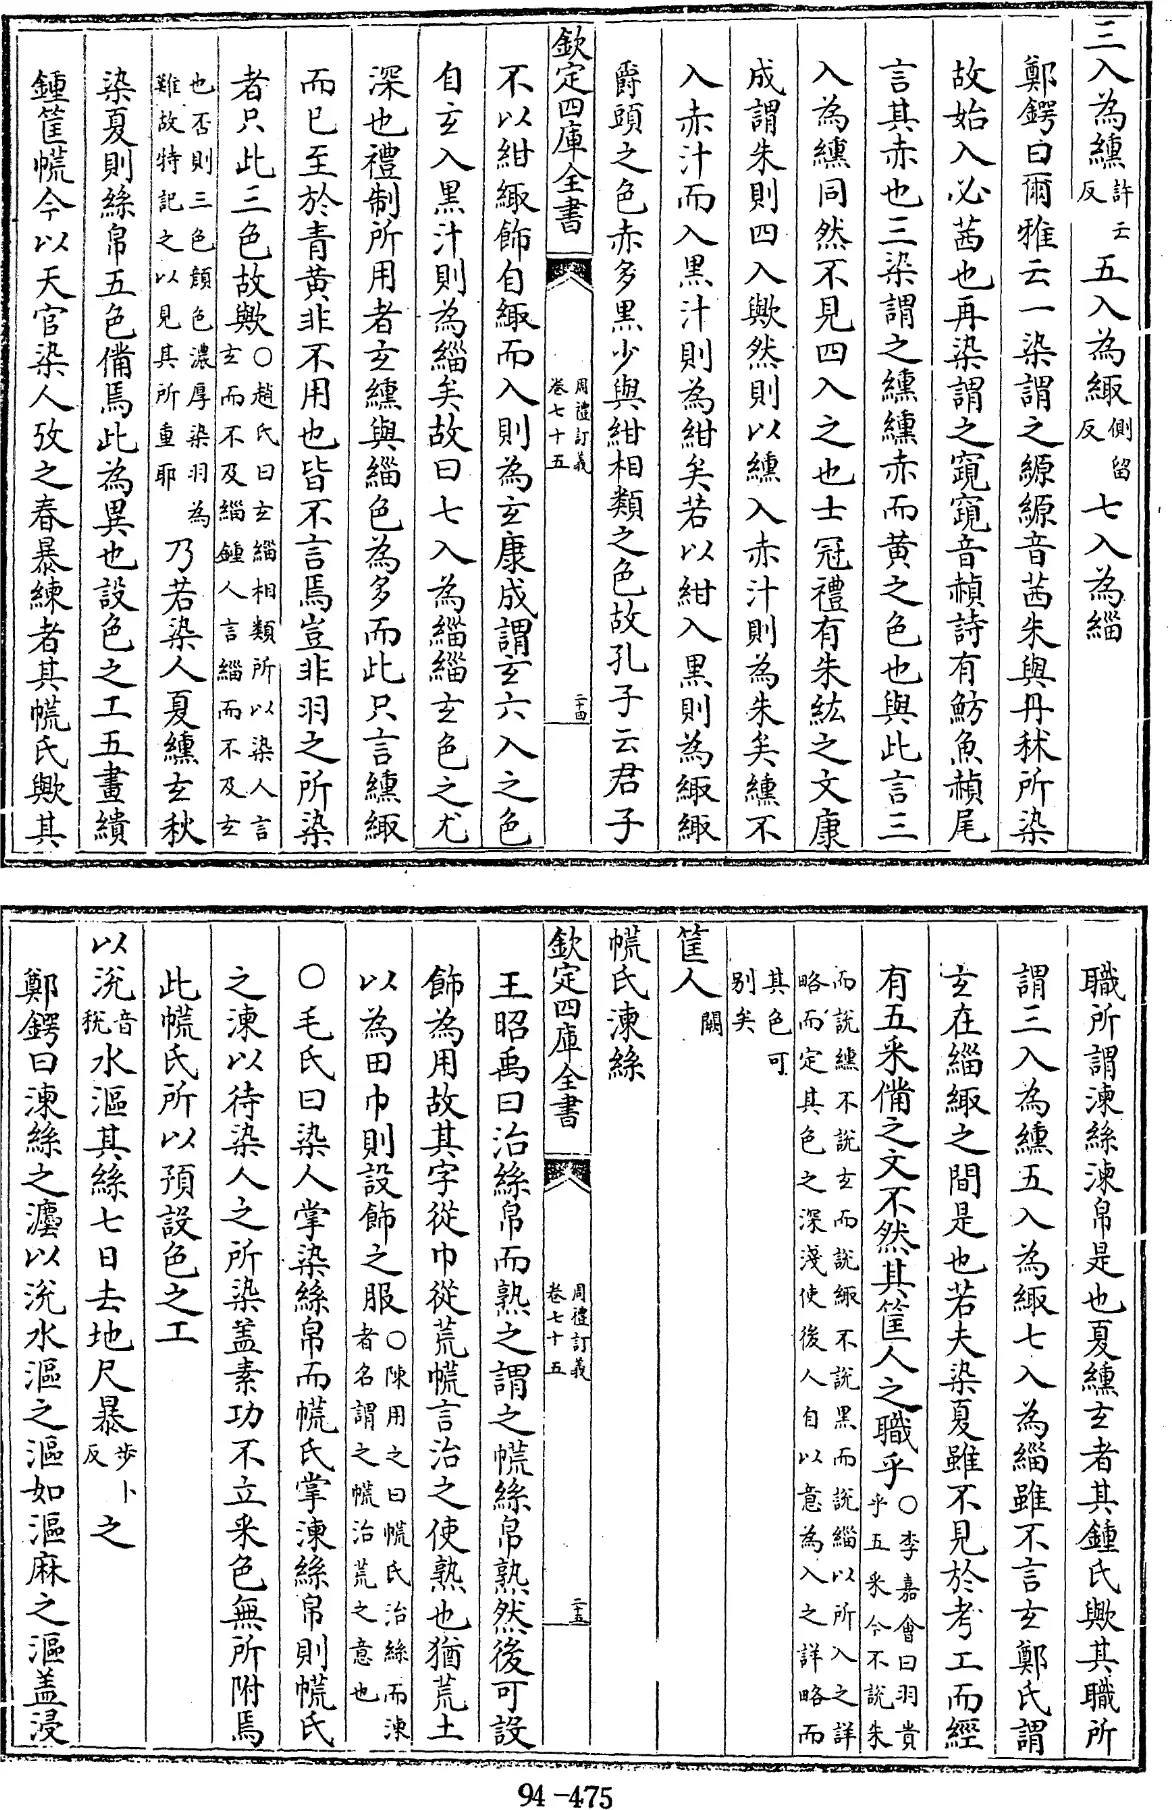 三入為纁許云反五入為緅側留反七入為緇
鄭鍔曰爾雅云一染謂之縓縓音茜朱與丹秫所染
故始入必茜也再染謂之竀竀音赬詩有魴魚赬尾
言其赤也三染謂之纁纁赤而黄之色也與此言三
入為纁同然不見四入之也士冠禮有朱紘之文康
成謂朱則四入歟然則以纁入赤汁則為朱矣纁不
入赤汁而入黒汁則為紺矣若以紺入黒則為緅緅
爵頭之色赤多黒少與紺相類之色故孔子云君子
欽定四庫全書 周禮訂義卷七十五 二十四
不以紺緅飾自緅而入則為𤣥康成謂𤣥六入之色
自𤣥入黒汁則為緇矣故曰七入為緇緇𤣥色之尤
深也禮制所用者𤣥纁與緇色為多而此只言纁緅
而已至於青黄非不用也皆不言焉豈非羽之所染
者只此三色故歟○趙氏曰𤣥緇相類所以染人言𤣥而不及緇鍾人言緇而不及𤣥
也否則三色顔色濃厚染羽為難故特記之以見其所重耶乃若染人夏纁𤣥秋
染夏則絲帛五色備焉此為異也設色之工五畫繢
鍾筐㡛今以天官染人攷之春暴練者其㡛氏歟其
職所謂湅絲湅帛是也夏纁𤣥者其鍾氏歟其職所
謂三入為纁五入為緅七入為緇雖不言𤣥鄭氏謂
𤣥在緇緅之間是也若夫染夏雖不見於考工而經
有五采備之文不然其筐人之職乎○李嘉會曰羽貴乎五采今不説朱
而説纁不説𤣥而説緅不説黒而説緇以所入之詳略而定其色之深淺使後人自以意為入之詳略而
其色可别矣
筐人闕
㡛氏湅絲
欽定四庫全書 周禮訂義卷七十五 二十五
王昭禹曰治絲帛而熟之謂之㡛絲帛熟然後可設
飾為用故其字從巾從荒㡛言治之使熟也猶荒土
以為田巾則設飾之服○陳用之曰㡛氏治絲而湅者名謂之㡛治荒之意也
○毛氏曰染人掌染絲帛而㡛氏掌湅絲帛則㡛氏
之湅以待染人之所染盖素功不立采色無所附焉
此㡛氏所以預設色之工
以涚音稅水漚其絲七日去地尺暴步卜反之
鄭鍔曰湅絲之灋以涚水漚之漚如漚麻之漚盖浸
94-475